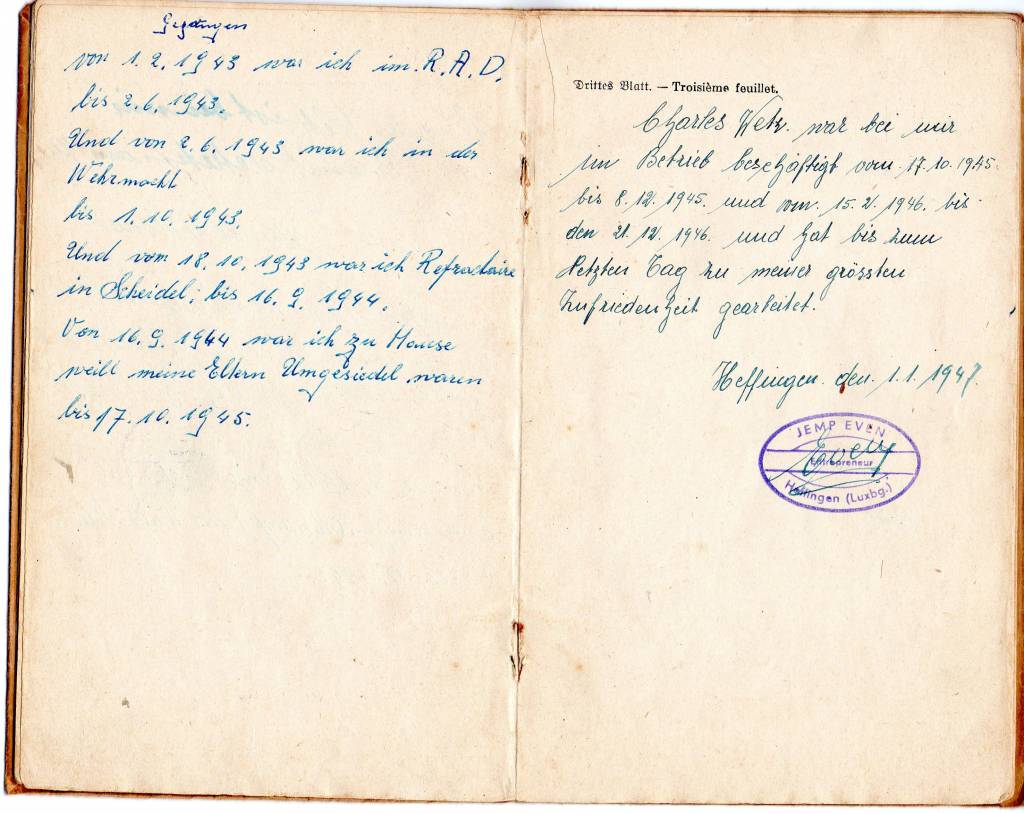 Gezwungen
von 1.2.1943 war ich im R.A.D.
bis 2.6.1943.
Und von 2.6.1943 war ich in der
Wehrmacht
bis 1.10.1943.
Und vom 18.10.1943 war ich Refractaire
in Scheidel; bis 16.9.1944.
Von 16.9.1944 war ich zu Hause
weill meine Eltern Umgesiedel waren
bis 17.10.1945.
Drittes Blatt. — Troisième feuillet.
Charles Wetz. war bei mir
im Betrieb beschäftigt vom 17.10.1945.
bis 8.12.1945. und vom. 15.2.1946. bis
den 21.12.1946. und hat bis zum
letzten Tag zu meiner grössten
Zufriedenheit gearbeitet.
Heffingen. den. 1.1.1947.
JEMP EVEN
Even
Entrepreneur
Heffingen (Luxbg.)